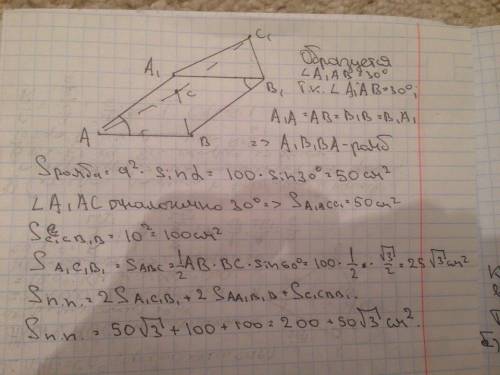 C₁
A₁
B₁
C
A
B
Образуется
∠A₁AB=30°
т.к. ∠A₁AB=30°,
A₁A=AB=B₁B=B₁A₁
=> A₁B₁BA-ромб
Sромба=a²·sinα=100·sin30°=50см²
∠A₁AC аналогично 30°=> SA₁ACC₁=50см²
SC₁CB₁B=10²=100см²
SA₁C₁B₁=SABC=1/2AB·BC·sin60°=100·1/2·√3/2=25√3см²
Sп.п.=2SA₁C₁B₁+2SAA₁B₁B+SC₁CBB₁.
Sп.п.=50√3+100+100=200+50√3см².